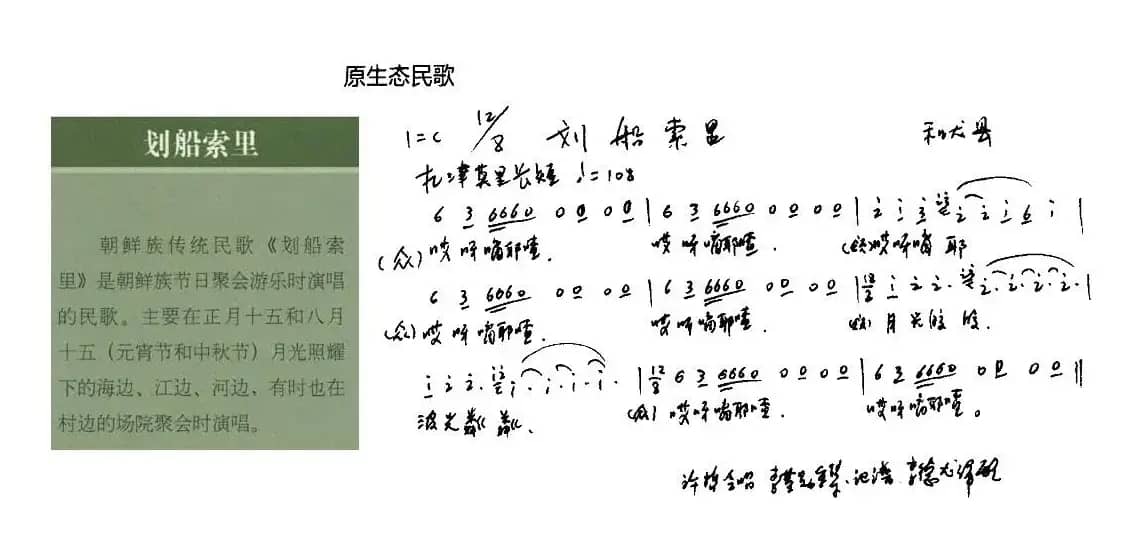 原生态民歌
划船索里
朝鲜族传统民歌《划船索
里》是朝鲜族节日聚会游乐时演唱
的民歌。主要在正月十五和八月
十五（元宵节和中秋节）月光照耀
下的海边、江边、河边、有时也在
村边的场院聚会时演唱。
1=C 12/8 划船索里 和龙县
扎津莫里长短 ♩.=108
6 3 6660 0 0 0 0 | 6 3 6660 0 0 0 0 |
(众)哎呀嗬耶喳. 哎呀嗬耶喳. 哎呀嗬耶
6 3 6060 0 0 0 0 | 6 3 6660 0 0 0 0 |
(众)哎呀嗬耶喳. 哎呀嗬耶喳. 月光皎皎.
波光粼粼.
12/8 6 3 6660 0 0 0 0 | 6 3 6660 0 0 0 0 ‖
(众)哎呀嗬耶喳. 哎呀嗬耶喳。
记谱